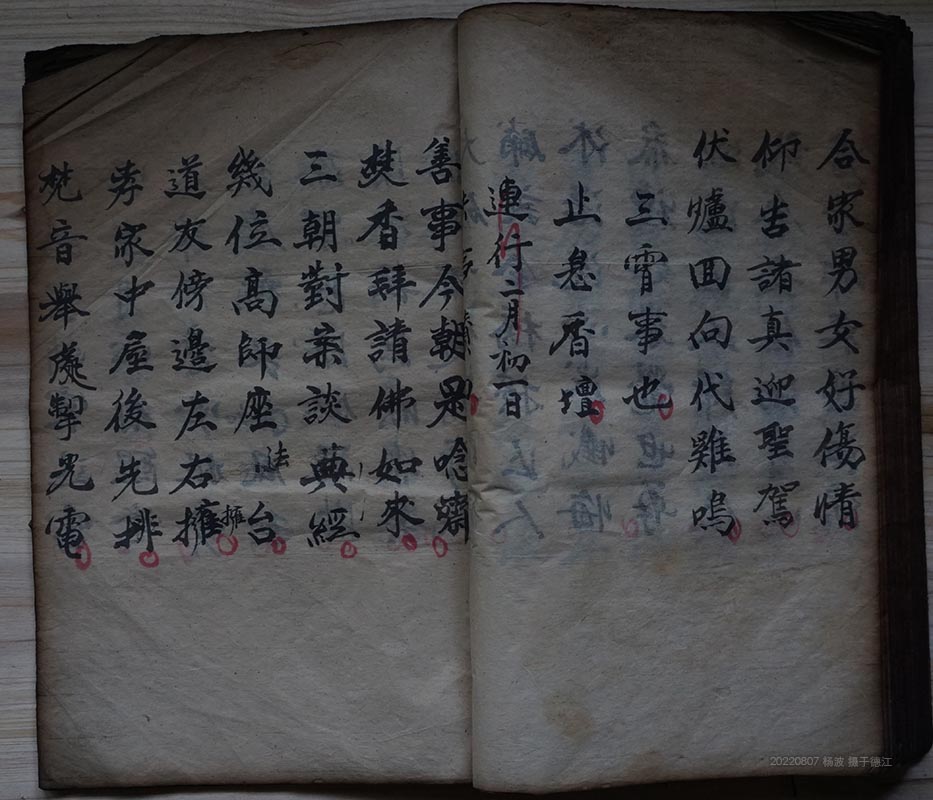 合家男女好傷情
仰告諸真迎聖駕
伏爐回向代雞鳴
三宵事也
止息香壇
連行二月初一日
善事今朝是唸齋
焚香拜請佛如來
三朝對案談典經
幾位高師座法台
道友傍邊左右擁擁
孝家中屋後先排
梵音舉處擊晃電
20220807 杨波 摄于德江